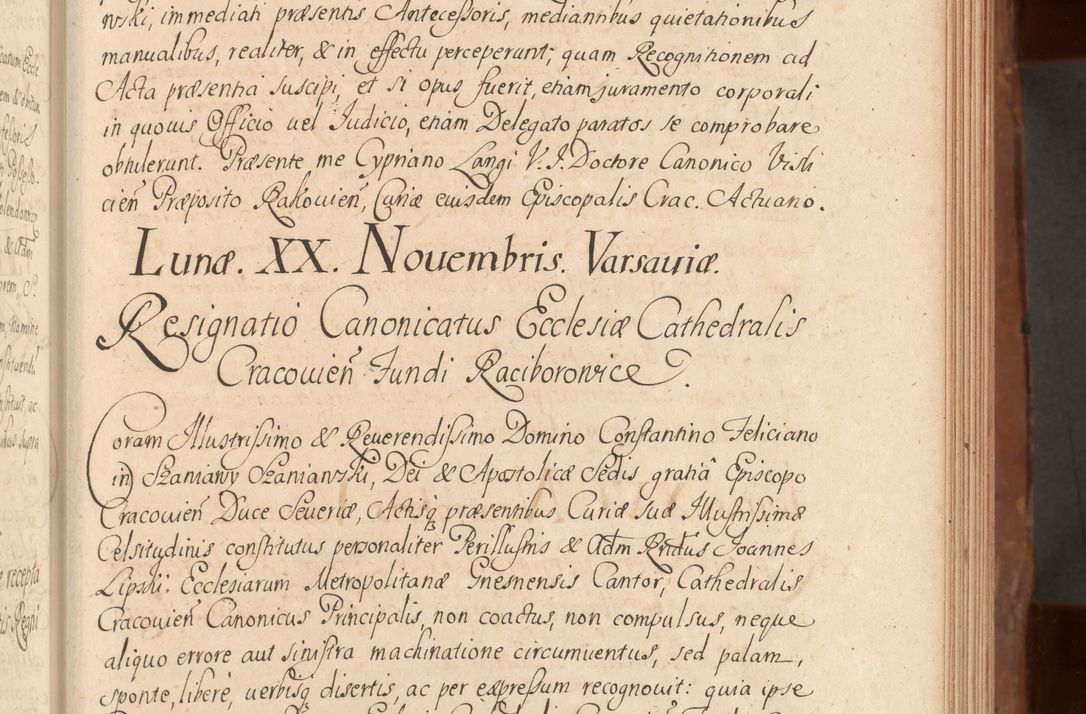 nski, immediati præsentis Antecessoris, mediantibus quietationibus
manualibus, realiter, & in effectu perceperunt; quam Recognitionem ad
Acta præsentia suscipi, et si opus fuerit, etiam juramento corporali
in quouis Officio uel Judicio, etiam Delegato paratos se comprobare
obtulerunt. Præsente me Cypriano Langi V. J. Doctore Canonico Visli
cien̄ Præposito Rakouien̄, Curiæ eiusdem Episcopalis Crac. Actuario.
Lunæ. XX. Nouembris. Varsauiæ.
Resignatio Canonicatus Ecclesiæ Cathedralis
Cracouien̄ Fundi Raciborowice.
Coram Illustrissimo & Reuerendissimo Domino Constantino Feliciano
in Szaniawy Szaniawski, Dei & Apostolicæ Sedis gratiâ Episcopo
Cracouien̄ Duce Seueriæ, Actisq præsentibus Curiæ suæ Illustrissimæ
Celsitudinis constitutus personaliter Perillustris & Adm Rndus Joannes
Lipski. Ecclesiarum Metropolitanæ Gnesnensis Cantor, Cathedralis
Cracouien̄ Canonicus Principalis, non coactus, non compulsus, neque
aliquo errore aut sinistra machinatione circumuentus, sed palam,
sponte, libere, uerbisq disertis, ac per expressum recognouit: quia ipse